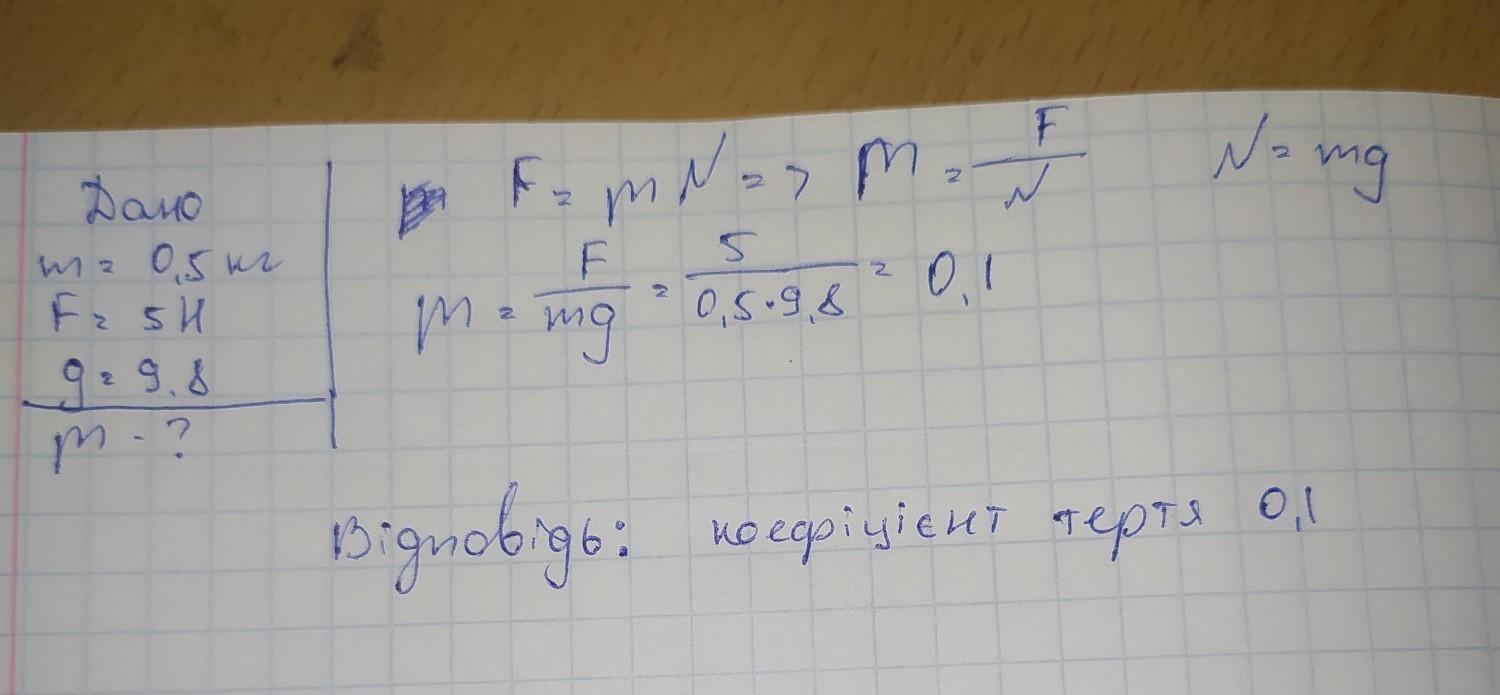 Дано
m = 0,5 кг
F = 5 Н
g = 9.8
m - ?
F = m N => m = F/N N = mg
m = F/mg = 5/0,5·9,8 = 0,1
Відповідь: коефіцієнт тертя 0,1